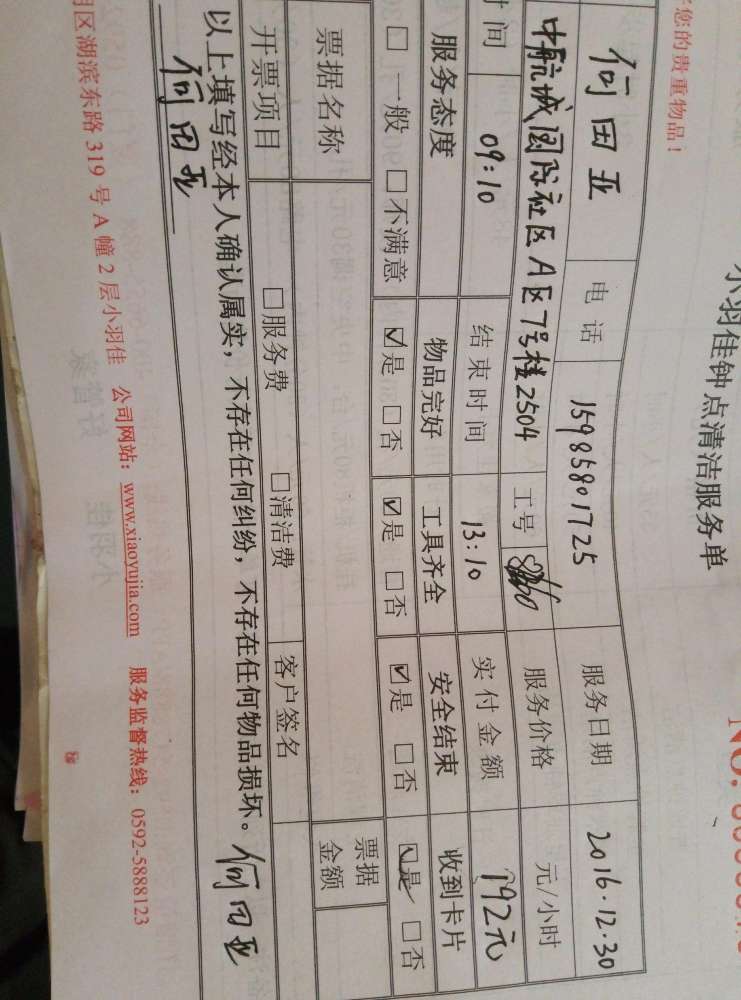 小羽佳钟点清洁服务单
您的贵重物品！
何田亚 电话 15985801725 服务日期 2016.12.30
中航城国际社区A区7号楼2504 工号 服务价格 元/小时
时间 09:10 结束时间 13:10 实付金额 192元
服务态度 物品完好 工具齐全 安全结束 收到卡片
□一般 □不满意 ☑是 □否 ☑是 □否 ☑是 □否 ☑是 □否
票据名称 票据金额
开票项目 □服务费 □清洁费 客户签名
以上填写经本人确认属实，不存在任何纠纷，不存在任何物品损坏。何田亚
何田亚
区湖滨东路 319 号 A 幢 2 层小羽佳 公司网站：www.xiaoyujia.com 服务监督热线：0592-5888123